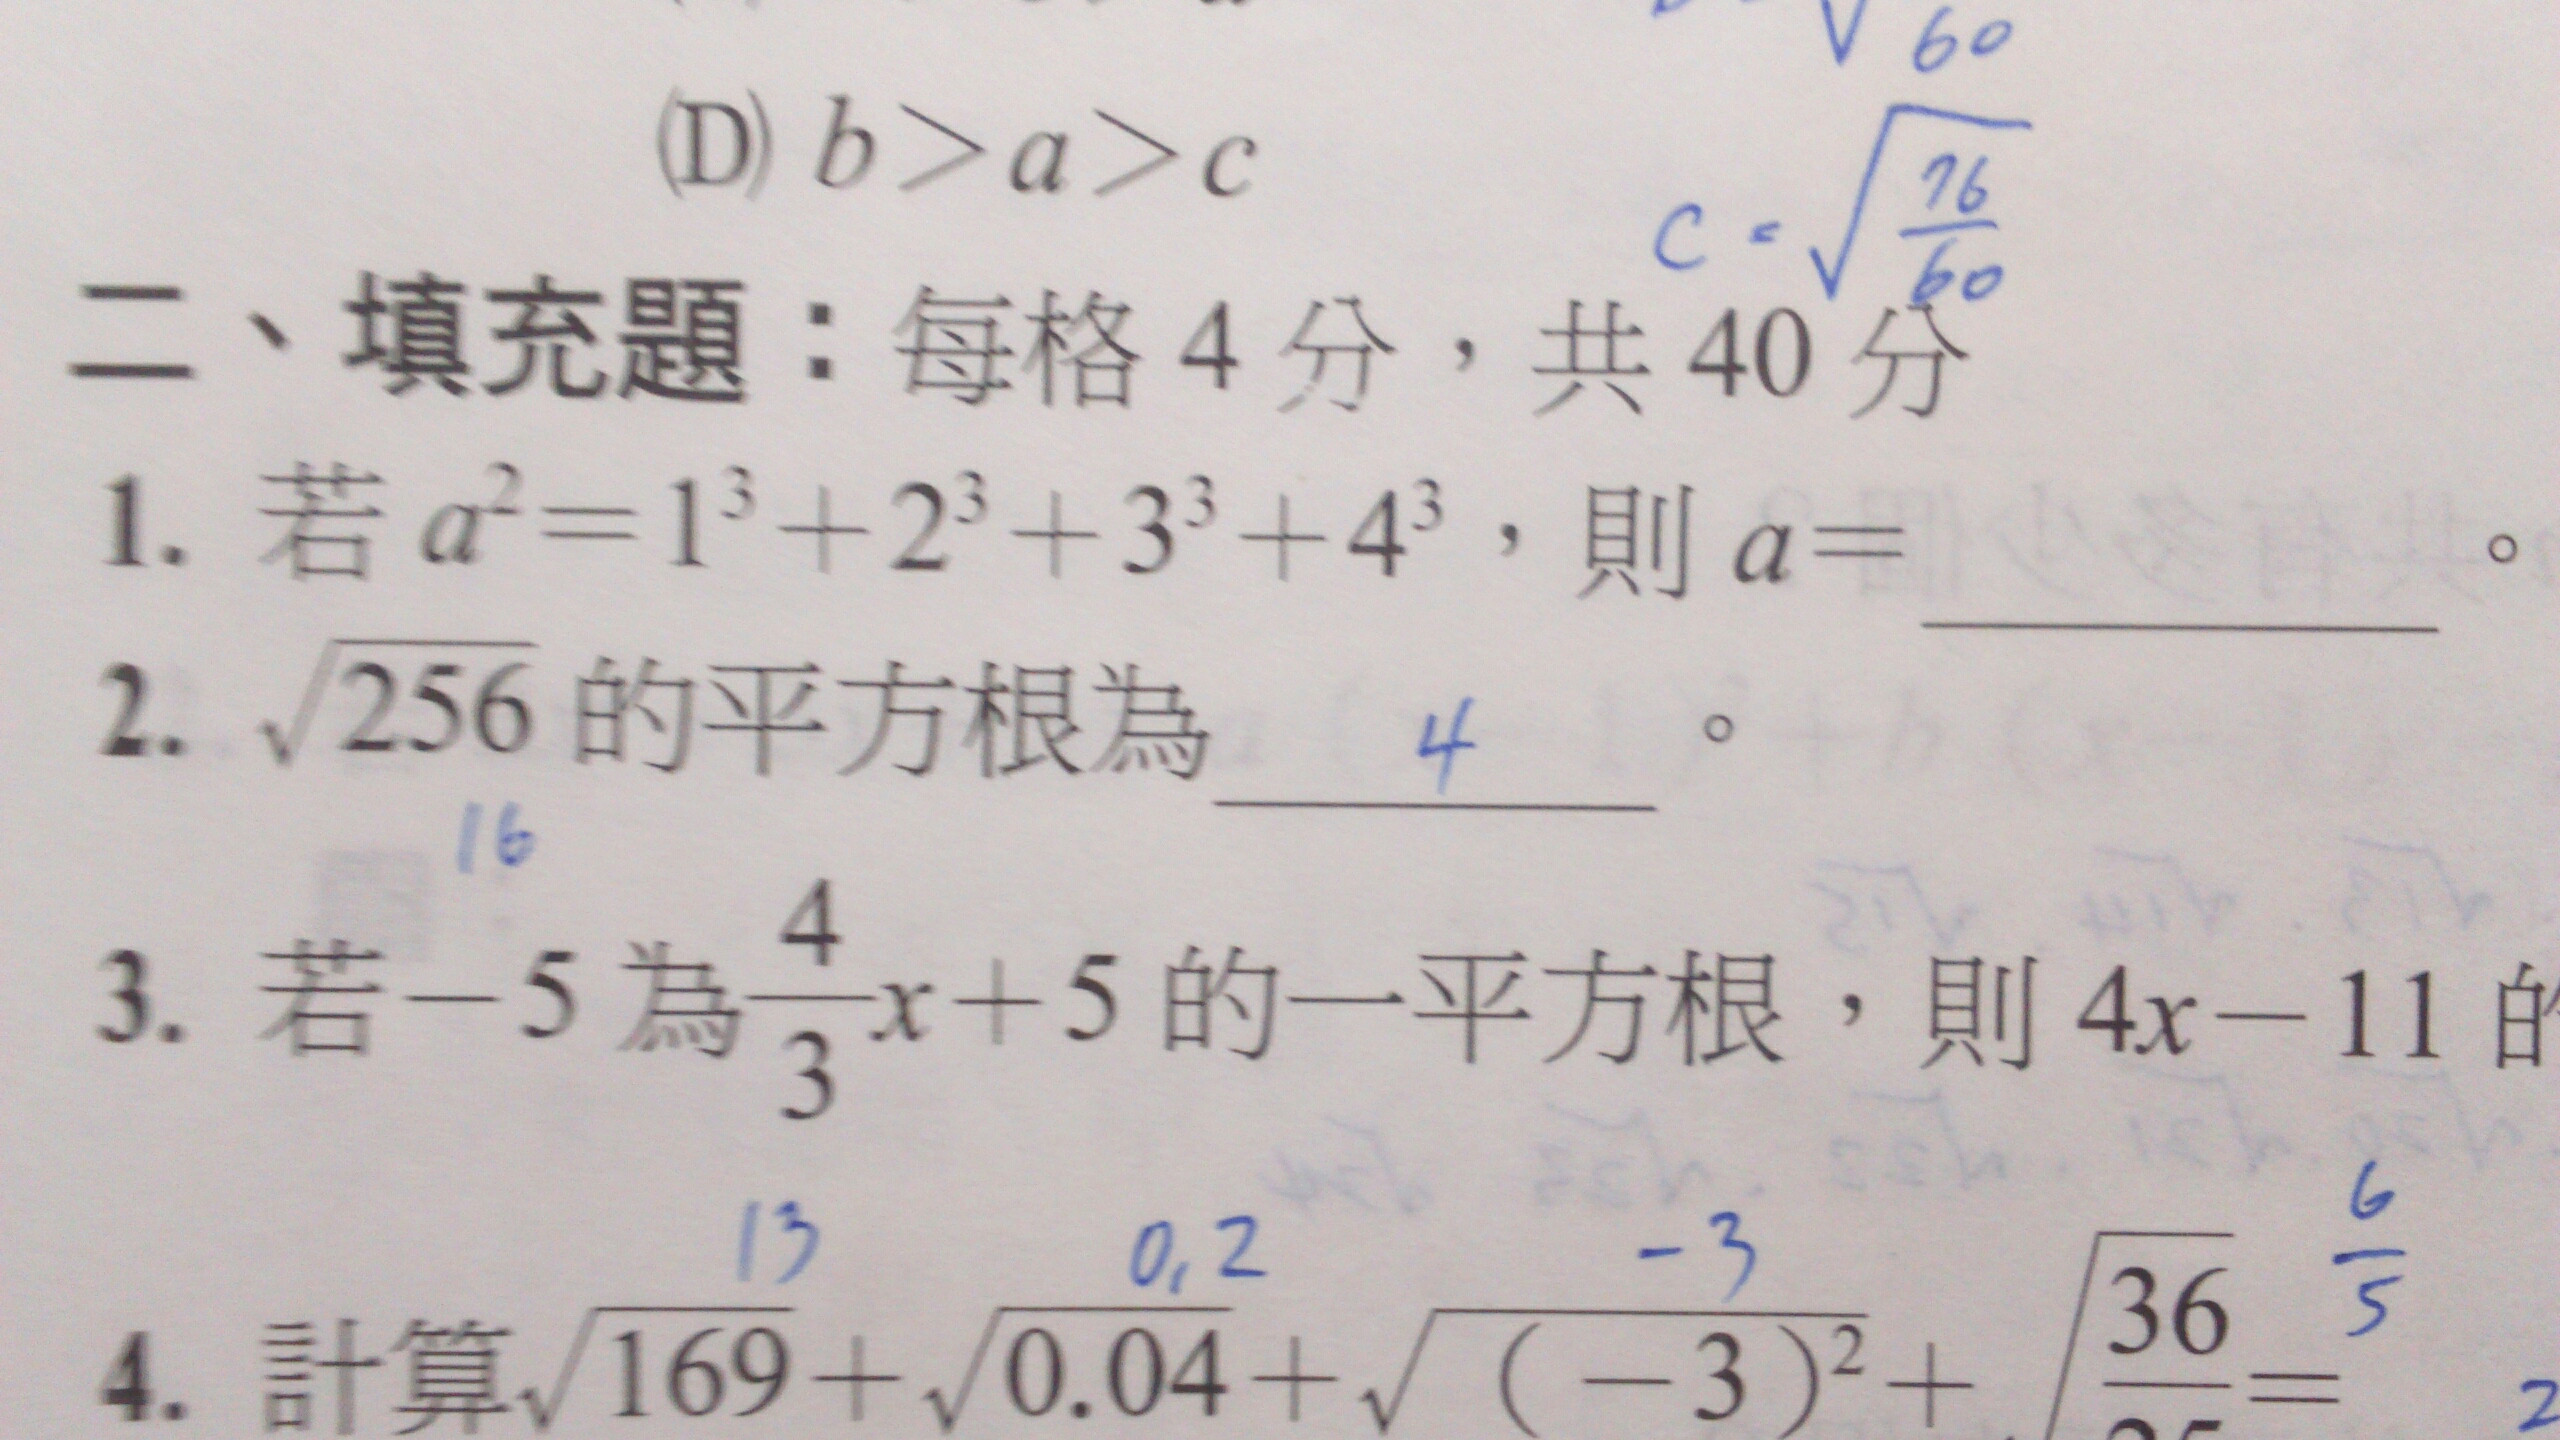 60
(D) b>a>c
c=√(76/60)
二、填充題：每格 4 分，共 40 分
1. 若 a²=1³+2³+3³+4³，則 a=______。
2. √256 的平方根為 4 。
16
3. 若-5 為 4/3 x+5 的一平方根，則 4x-11 的
13 0,2 -3 6/5
4. 計算√169+√0.04+√(-3)²+√(36/25)=
2